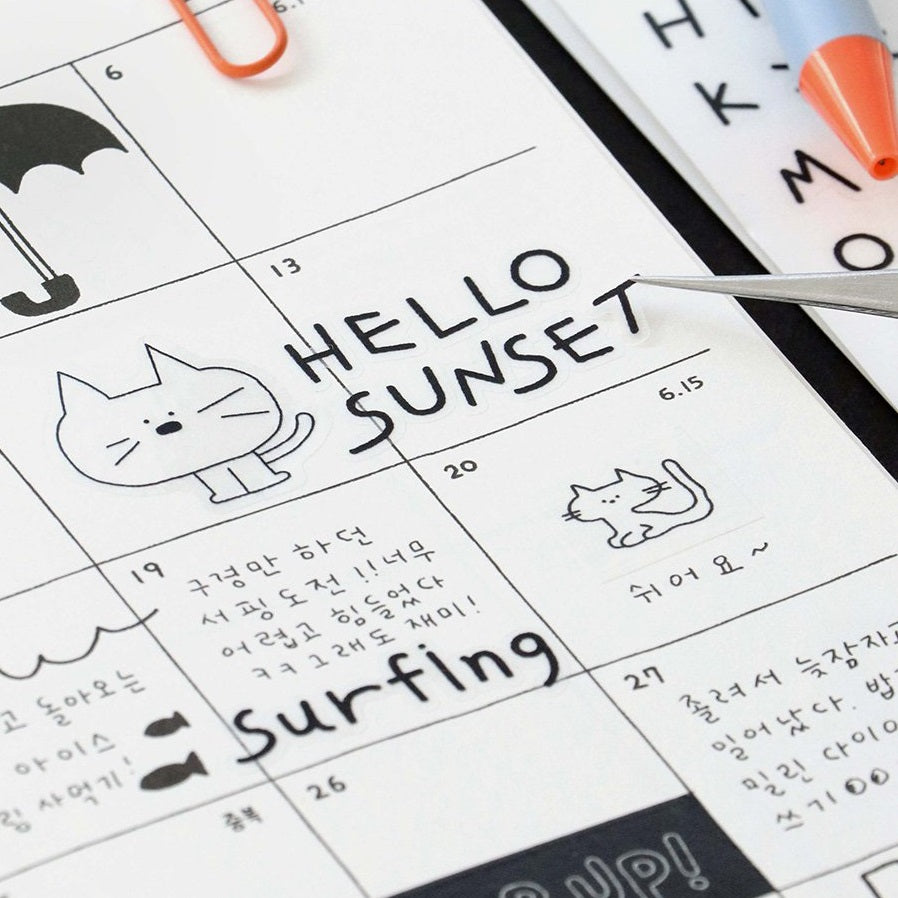 H
K
M
O
6
13
HELLO
SUNSET
6.15
20
쉬어요~
19
구경만 하던
서핑도전!!너무
어렵고 힘들었다
ㅋㅋ그래도 재미!
surfing
고 돌아오는
아이스
사먹기!
중복
26
UP!
27
졸려서 늦잠자고
일어났다. 밥
밀린 다이어
쓰기